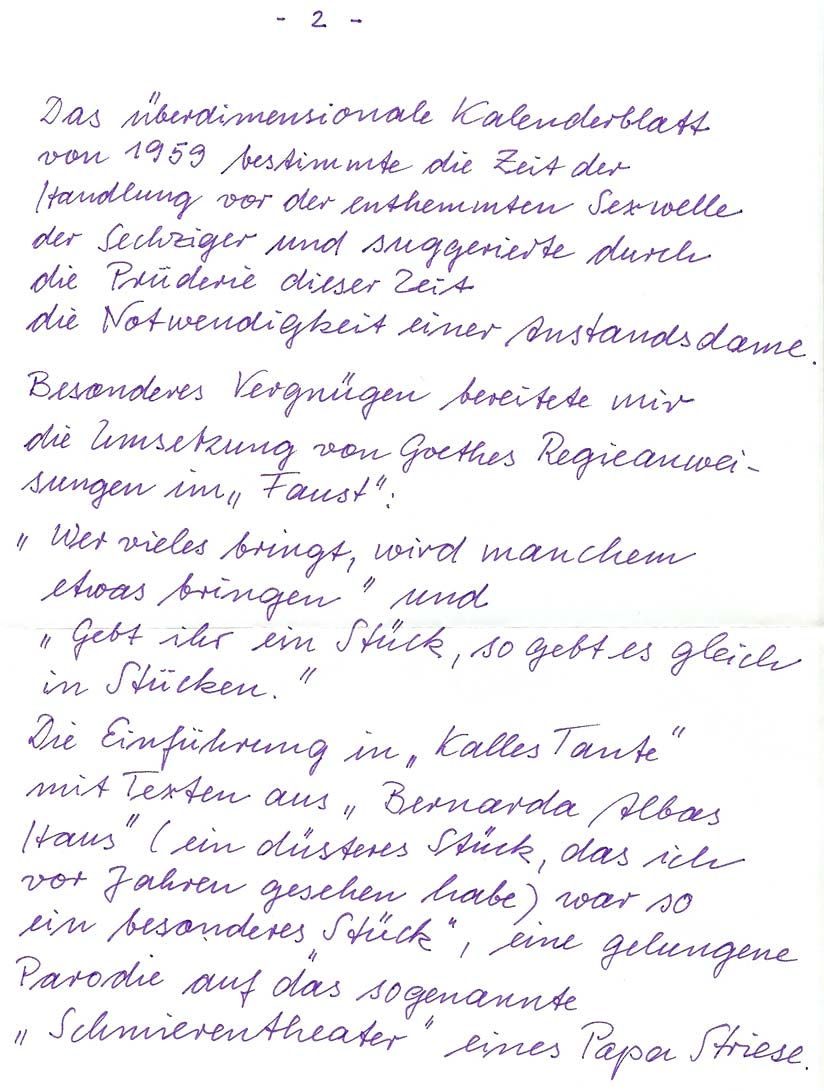 - 2 -
Das überdimensionale Kalenderblatt
von 1959 bestimmte die Zeit der
Handlung vor der enthemmten Sexwelle
der Sechziger und suggerierte durch
die Prüderie dieser Zeit
die Notwendigkeit einer Anstandsdame.
Besonderes Vergnügen bereitete mir
die Umsetzung von Goethes Regieanwei-
sungen im „Faust":
„Wer vieles bringt, wird manchem
etwas bringen" und
„Gebt ihr ein Stück, so gebt es gleich
in Stücken."
Die Einführung in „Kalles Tante"
mit Texten aus „Bernarda Albas
Haus" (ein düsteres Stück, das ich
vor Jahren gesehen habe) war so
ein besonderes „Stück", eine gelungene
Parodie auf das sogenannte
„Schmierentheater" eines Papa Striese.